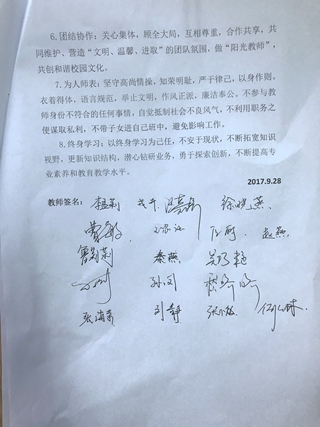 6.团结协作：关心集体，顾全大局，互相尊重，合作共享，共
同维护、营造“文明、温馨、进取”的团队氛围，做“阳光教师”，
共创和谐校园文化。
7.为人师表：坚守高尚情操，知荣明耻，严于律己，以身作则，
衣着得体，语言规范，举止文明，作风正派，廉洁奉公。不参与教
师身份不符合的任何事情，自觉抵制社会不良风气，不利用职务之
便谋取私利，不带子女进自己班中，避免影响工作。
8.终身学习：以终身学习为己任，不安于现状，不断拓宽知识
视野，更新知识结构，潜心钻研业务，勇于探索创新，不断提高专
业素养和教育教学水平。
2017.9.28
教师签名：
秦燕
刘静